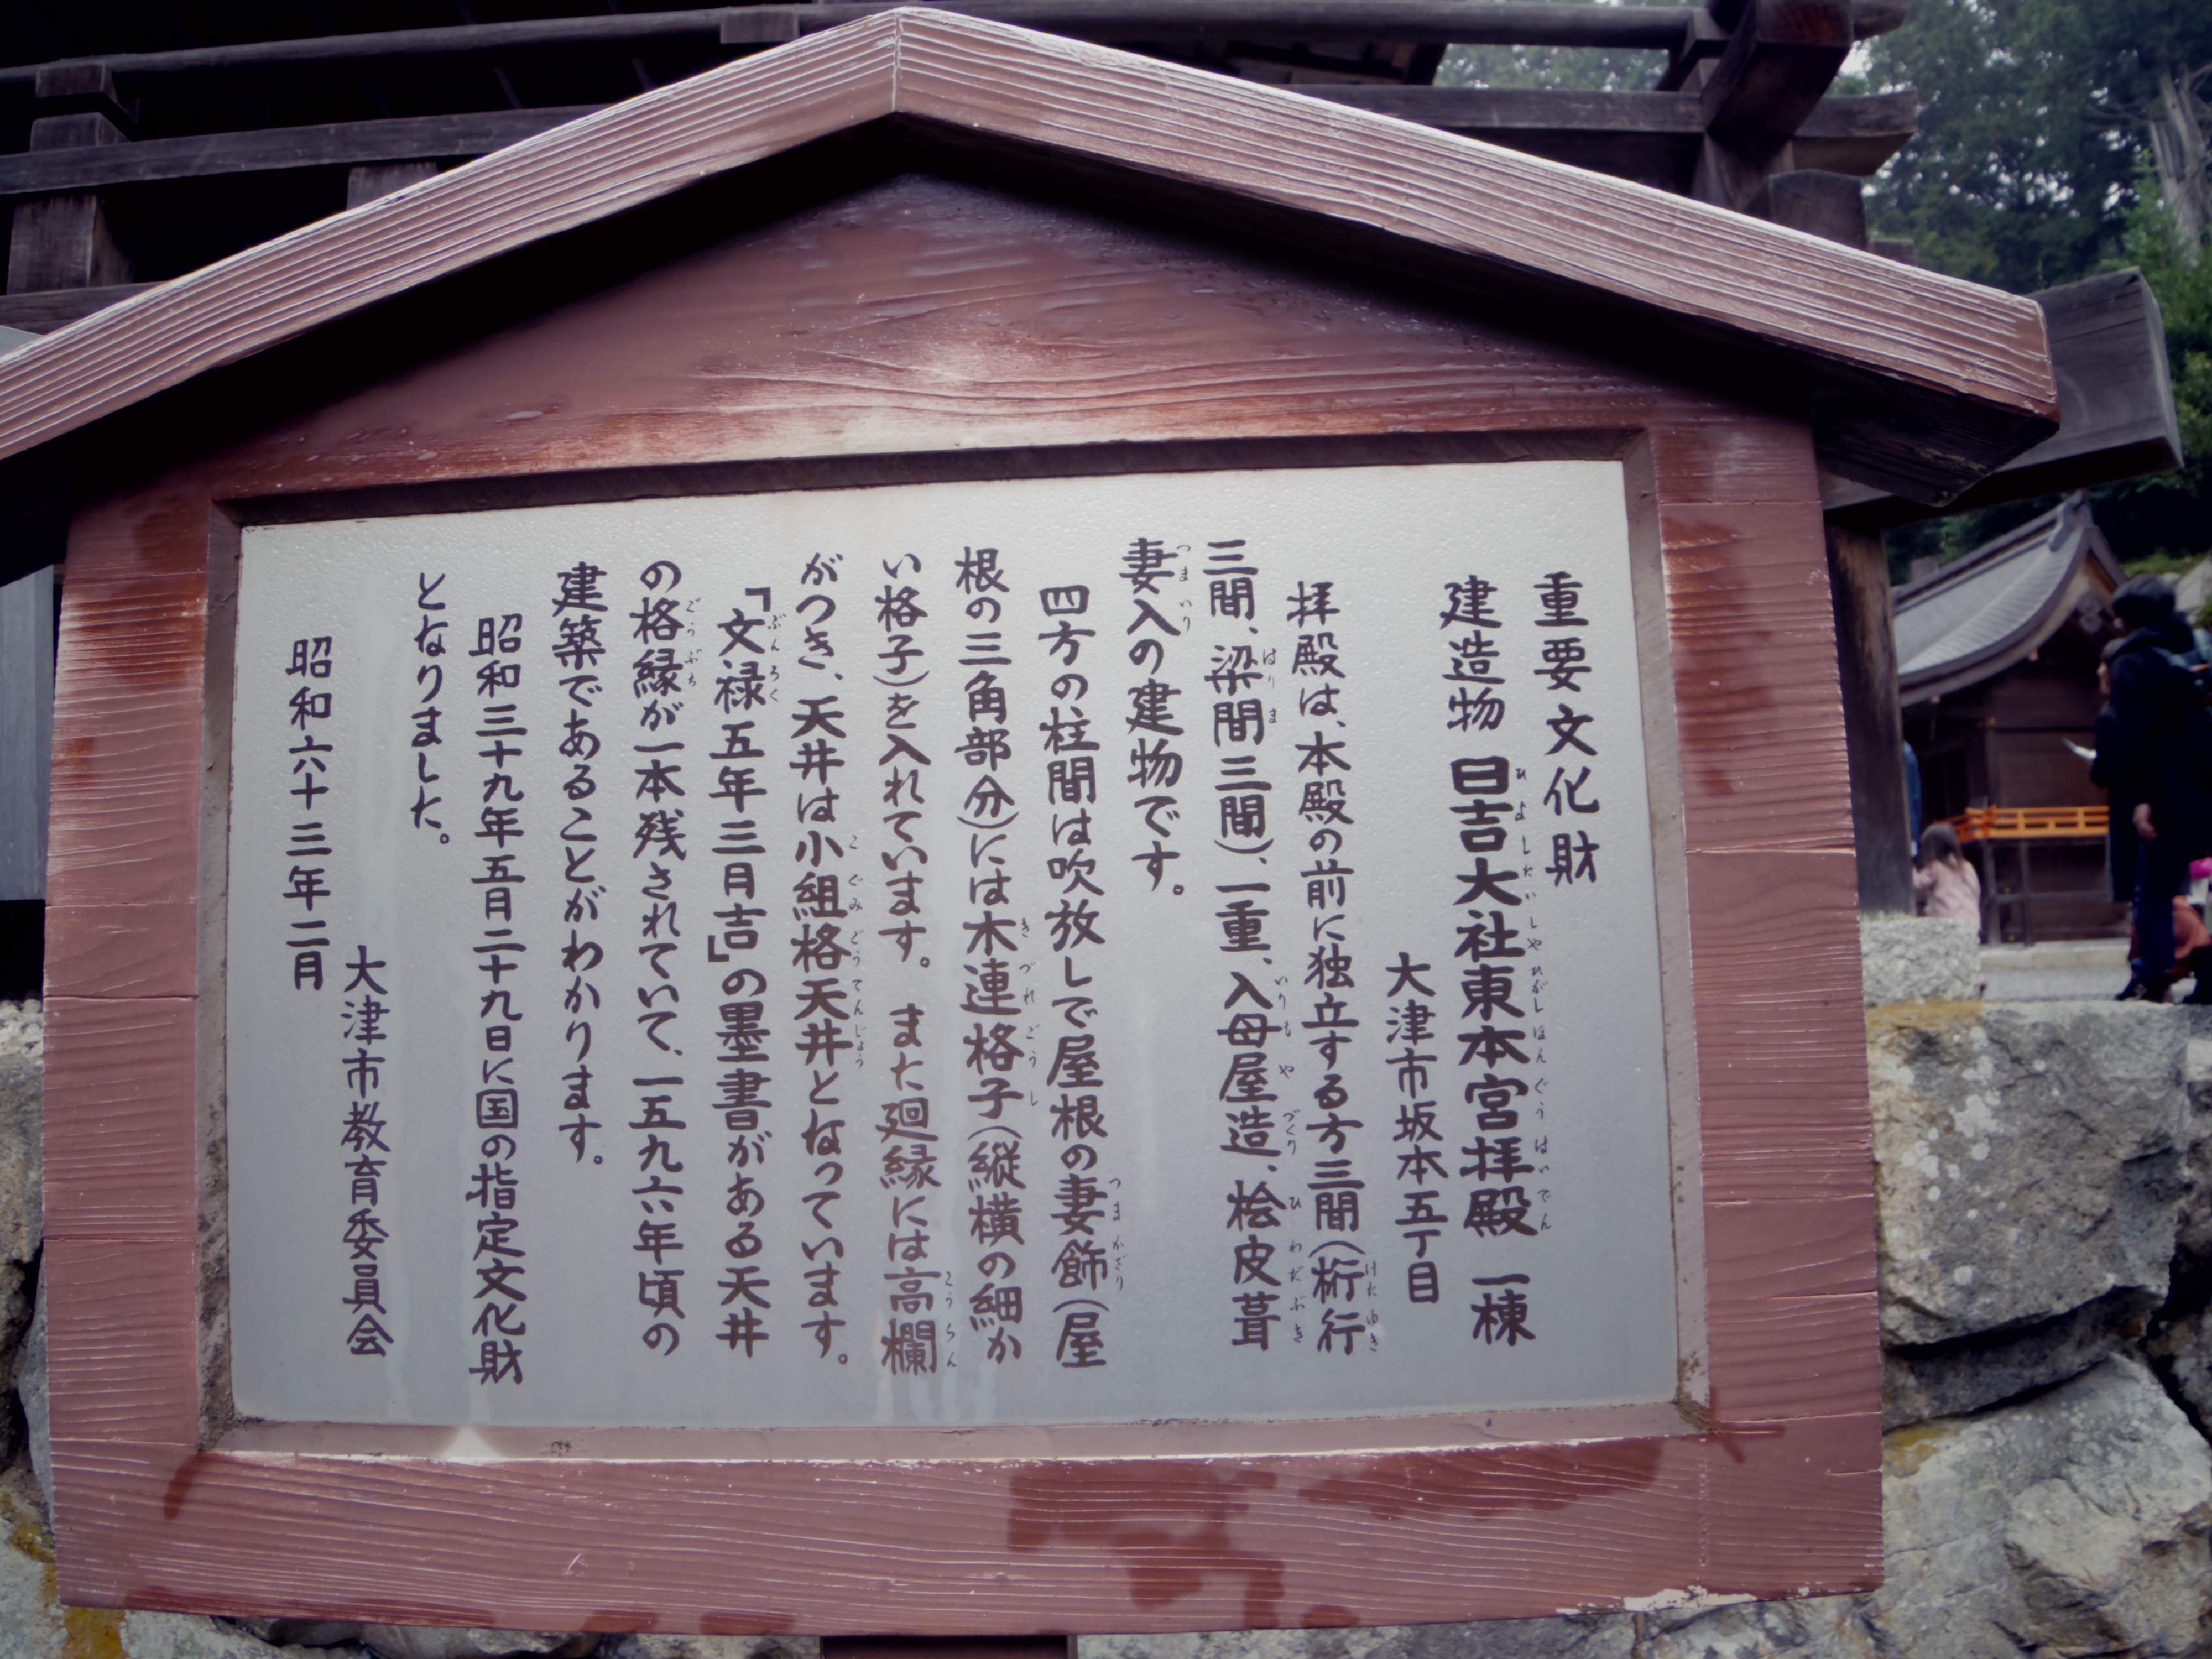 重要文化財
建造物 日吉大社東本宮拝殿 一棟
大津市坂本五丁目
拝殿は、本殿の前に独立する方三間(桁行
三間、梁間三間)、一重、入母屋造、桧皮葺
妻入の建物です。
四方の柱間は吹放しで屋根の妻飾(屋
根の三角部分)には木連格子(縦横の細か
い格子)を入れています。また廻縁には高欄
がつき、天井は小組格天井となっています。
「文禄五年三月吉」の墨書がある天井
の格縁が一本残されていて、一五九六年頃の
建築であることがわかります。
昭和三十九年五月二十九日に国の指定文化財
となりました。
大津市教育委員会
昭和六十三年二月